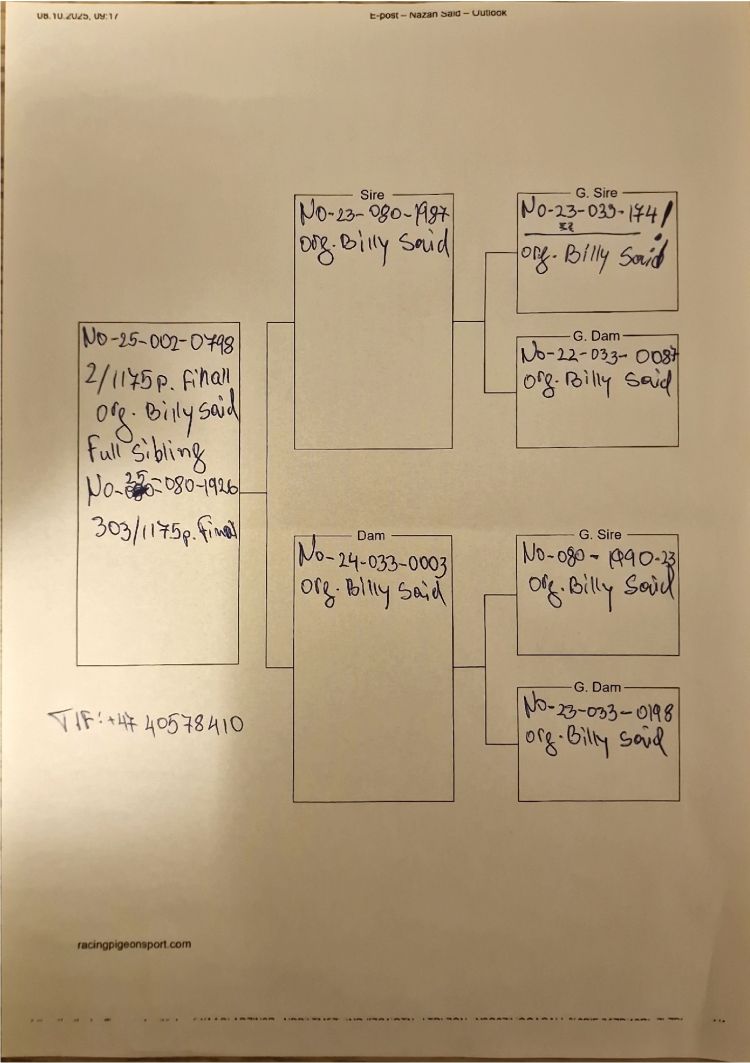 08.10.2025, 09:17
E-post – Nazan Said – Outlook
No-25-002-0798
2/1175p. Finall
org. Billy Said
Full Sibling
No-25-080-1926
303/1175p. Final
Tlf: +47 40578410
Sire
No-23-080-1987
org. Billy Said
Dam
No-24-033-0003
org. Billy Said
G. Sire
org. Billy Said
G. Dam
No-22-033-0087
org. Billy Said
G. Sire
No-080-1990-23
org. Billy Said
G. Dam
No-23-033-0198
org. Billy Said
racingpigeonsport.com